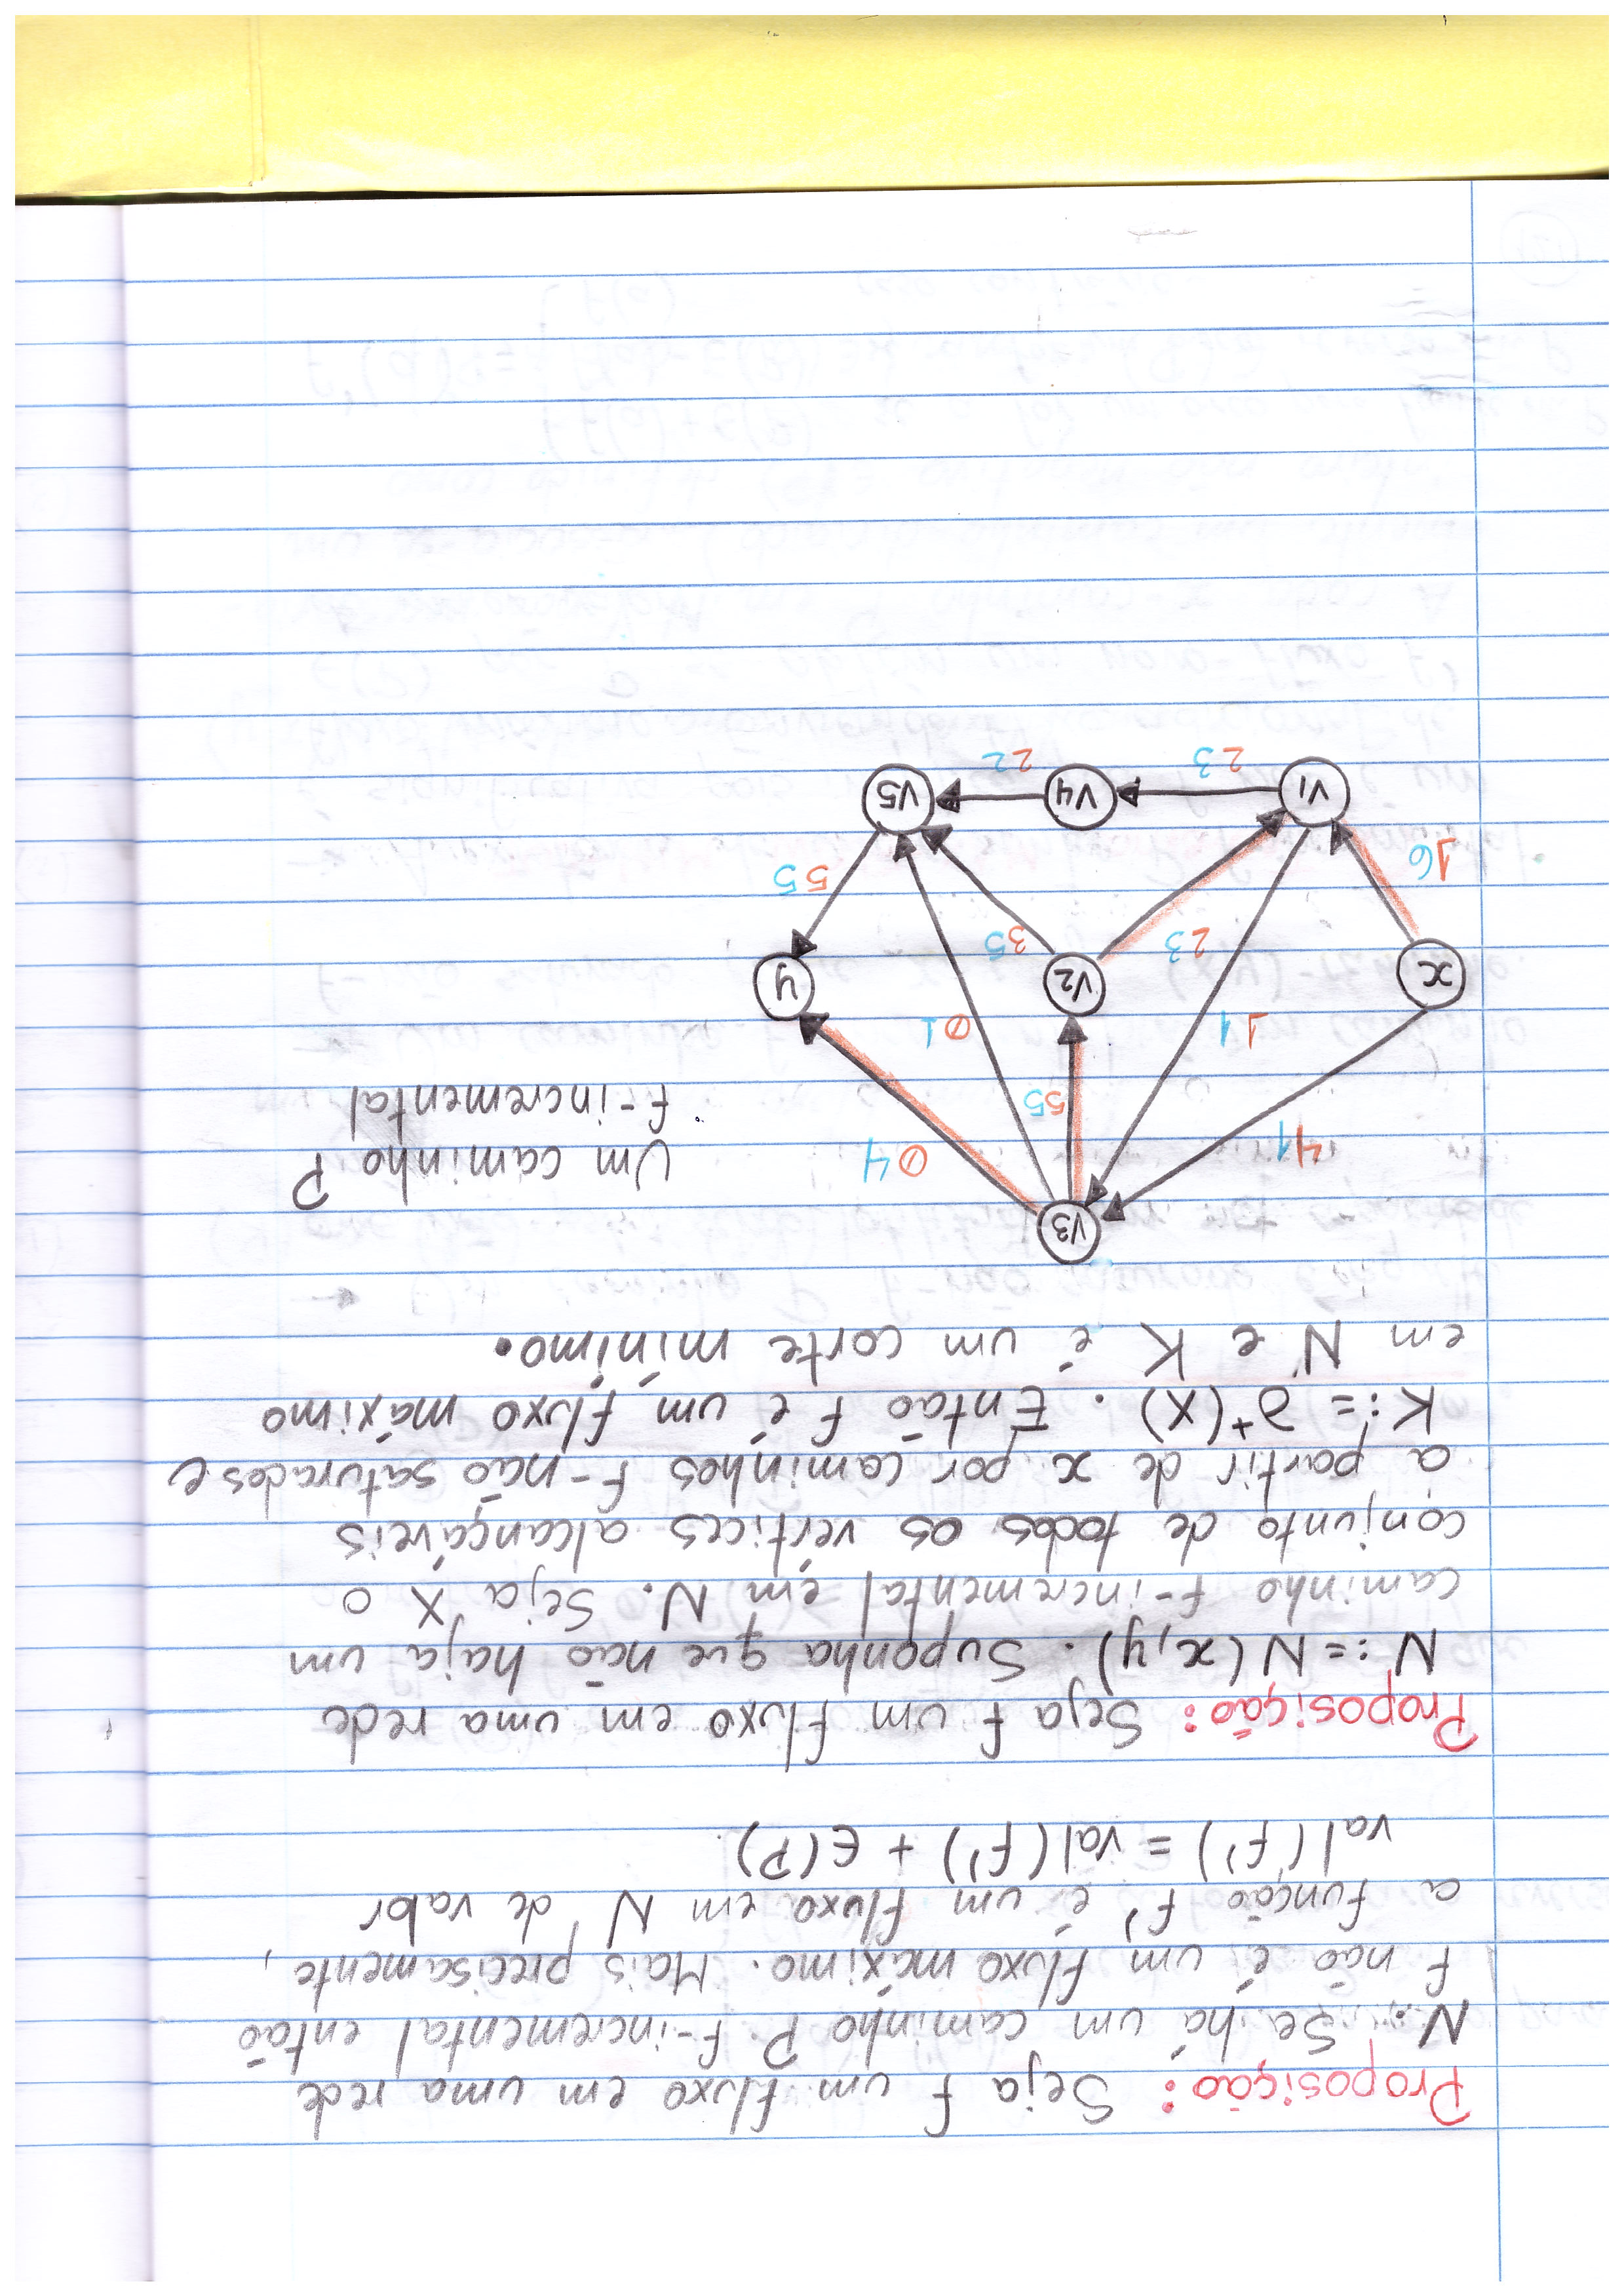 Proposição: Seja f um fluxo em uma rede
N. Se há um caminho P f-incremental então
f não é um fluxo máximo. Mais precisamente,
a função f' é um fluxo em N de valor
val(f') = val(f') + ϵ(P).
Proposição: Seja f um fluxo em uma rede
N := N(x,y). Suponha que não haja um
caminho f-incremental em N. Seja X o
conjunto de todos os vértices alcançáveis
a partir de x por caminhos f-não saturados e
K := ∂⁺(X). Então f é um fluxo máximo
em N e K é um corte mínimo.
v3
41
04
Um caminho P
f-incremental
55
11
01
x
v2
y
23
35
16
55
v1
v4
v5
23
22